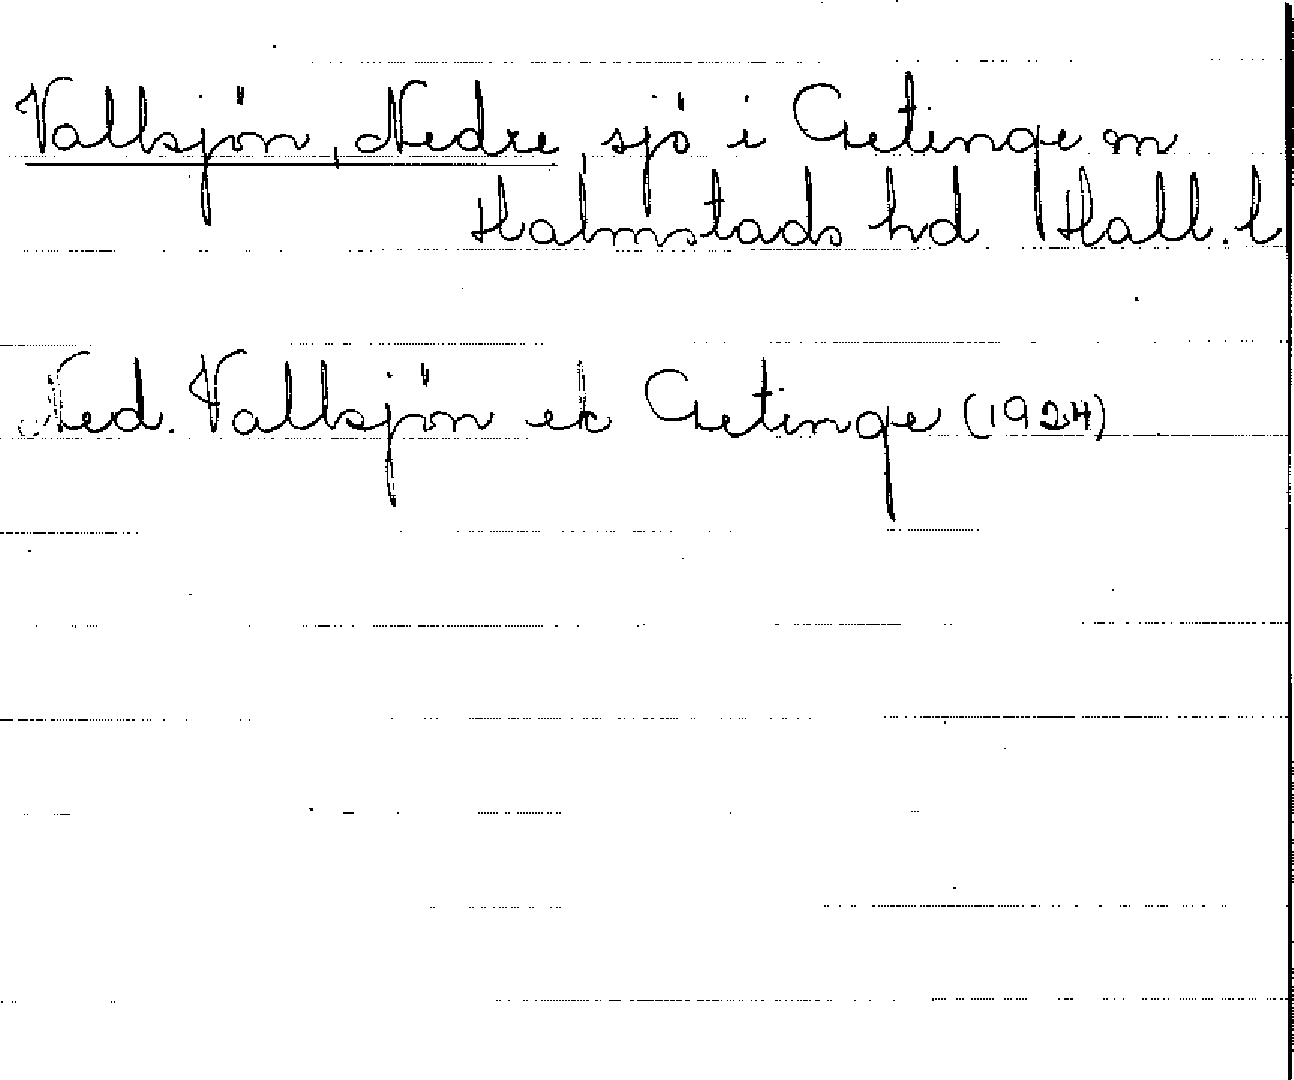 Vallsjön, Nedre sjö i Getinge sn
Halmstads hd Hall. l
Ned. Vallsjön ek Getinge (1924)